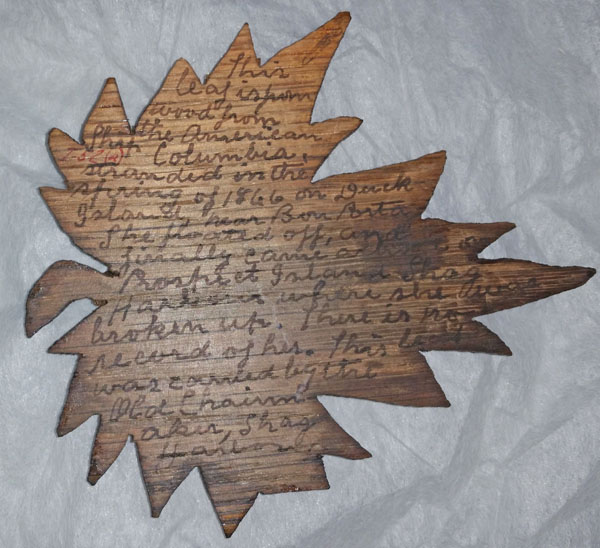 This
leaf is from
wood from
the American
Ship Columbia,
stranded in the
spring of 1866 on Duck
Island, near Bon Porta
She floated off, and
finally came a on
Prospect Island Shag
Harbour where she was
broken up. There is no
record of her. This leaf
was carved by the
Old Chairm
aker, Shag
Harbour